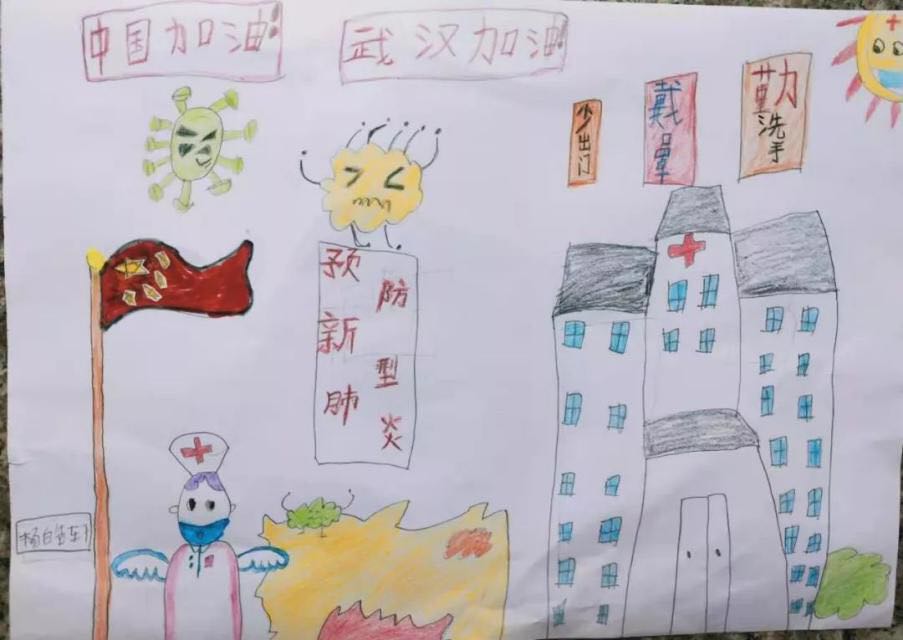 中国加油!
武汉加油!
少出门
戴口罩
勤洗手
预防新型肺炎